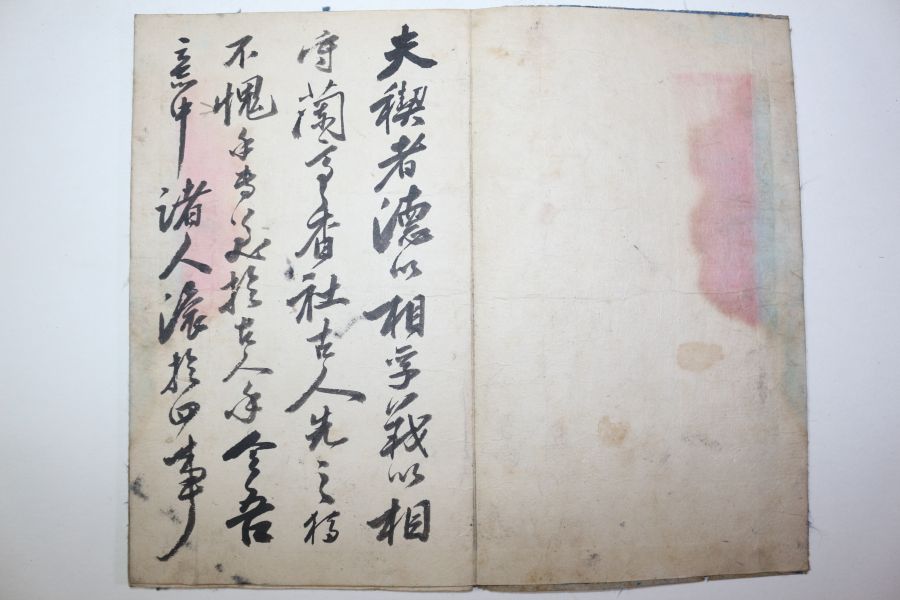 夫稧者德以相孚義以相
守蘭亭香社古人先之
不愧專美於古人乎今吾
意中諸人於四事